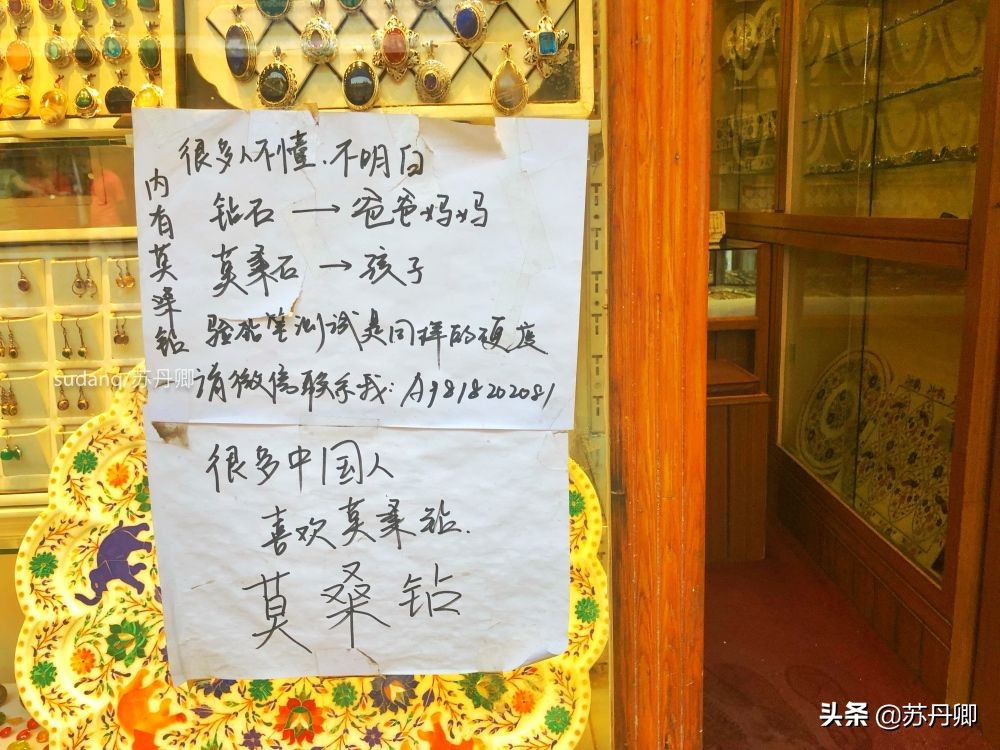 很多人不懂、不明白
内有莫桑钻
钻石 → 爸爸妈妈
莫桑石 → 孩子
验钻笔测试是同样的硬度
请微信联系我: A9818202081
很多中国人
喜欢莫桑钻.
莫桑钻
sudanqi苏丹卿
头条 @苏丹卿